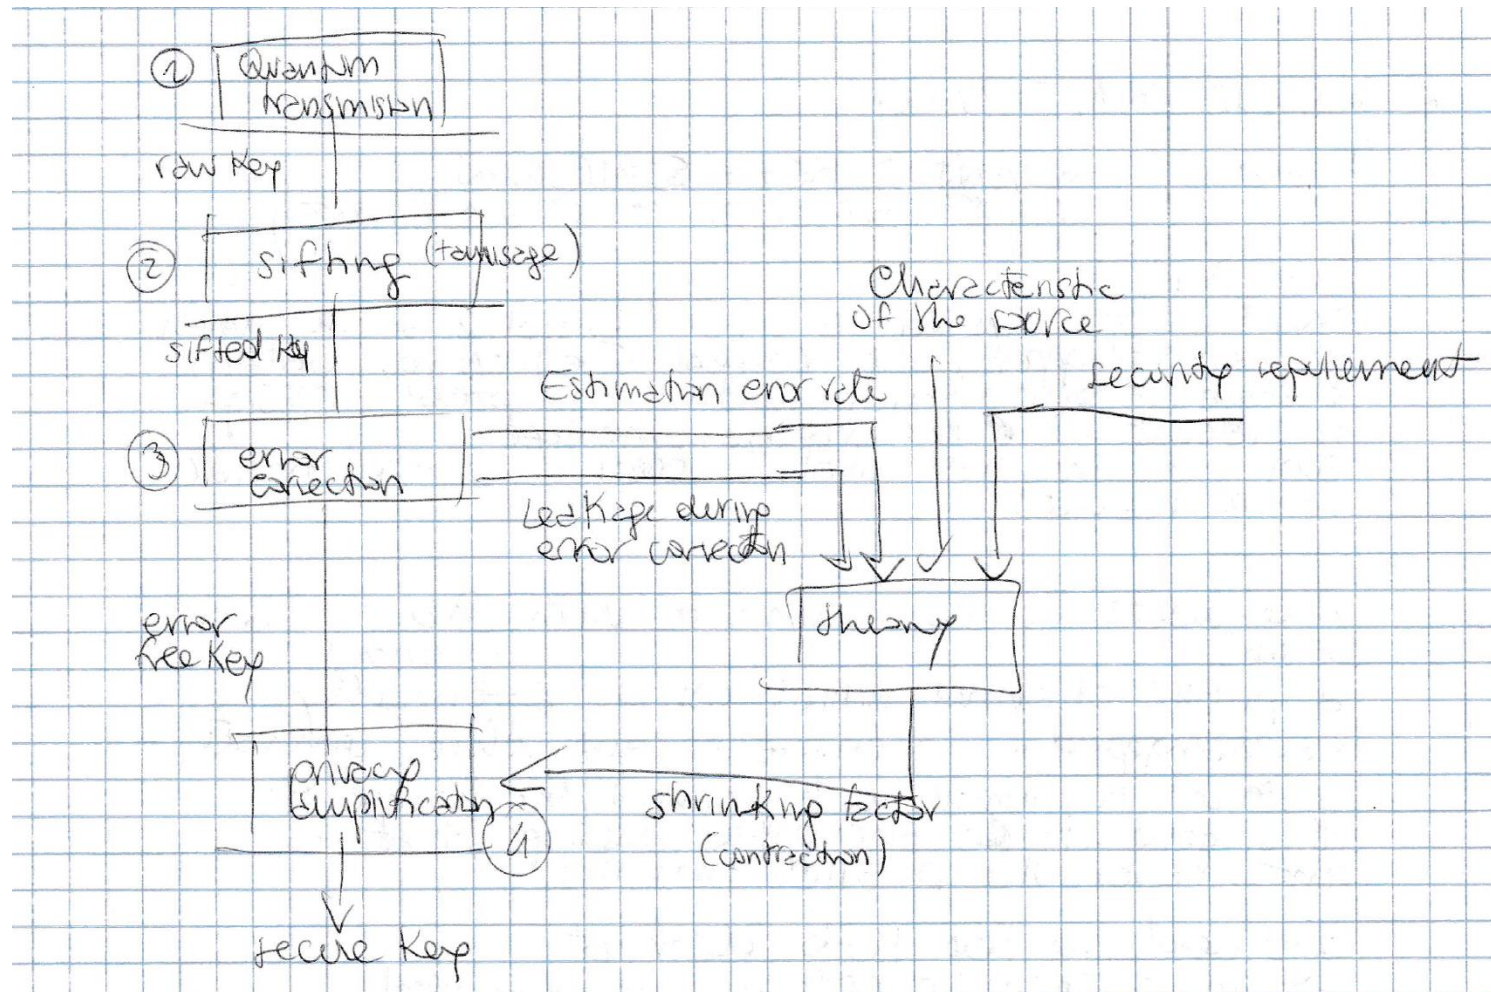 1 Quantum
transmission
raw key
2 sifting (tamisage)
Characteristic
of the source
sifted key
security requirement
Estimation error rate
3 error
correction
Leakage during
error correction
error
free key
theory
privacy
amplification
4
shrinking factor
(contraction)
secure key